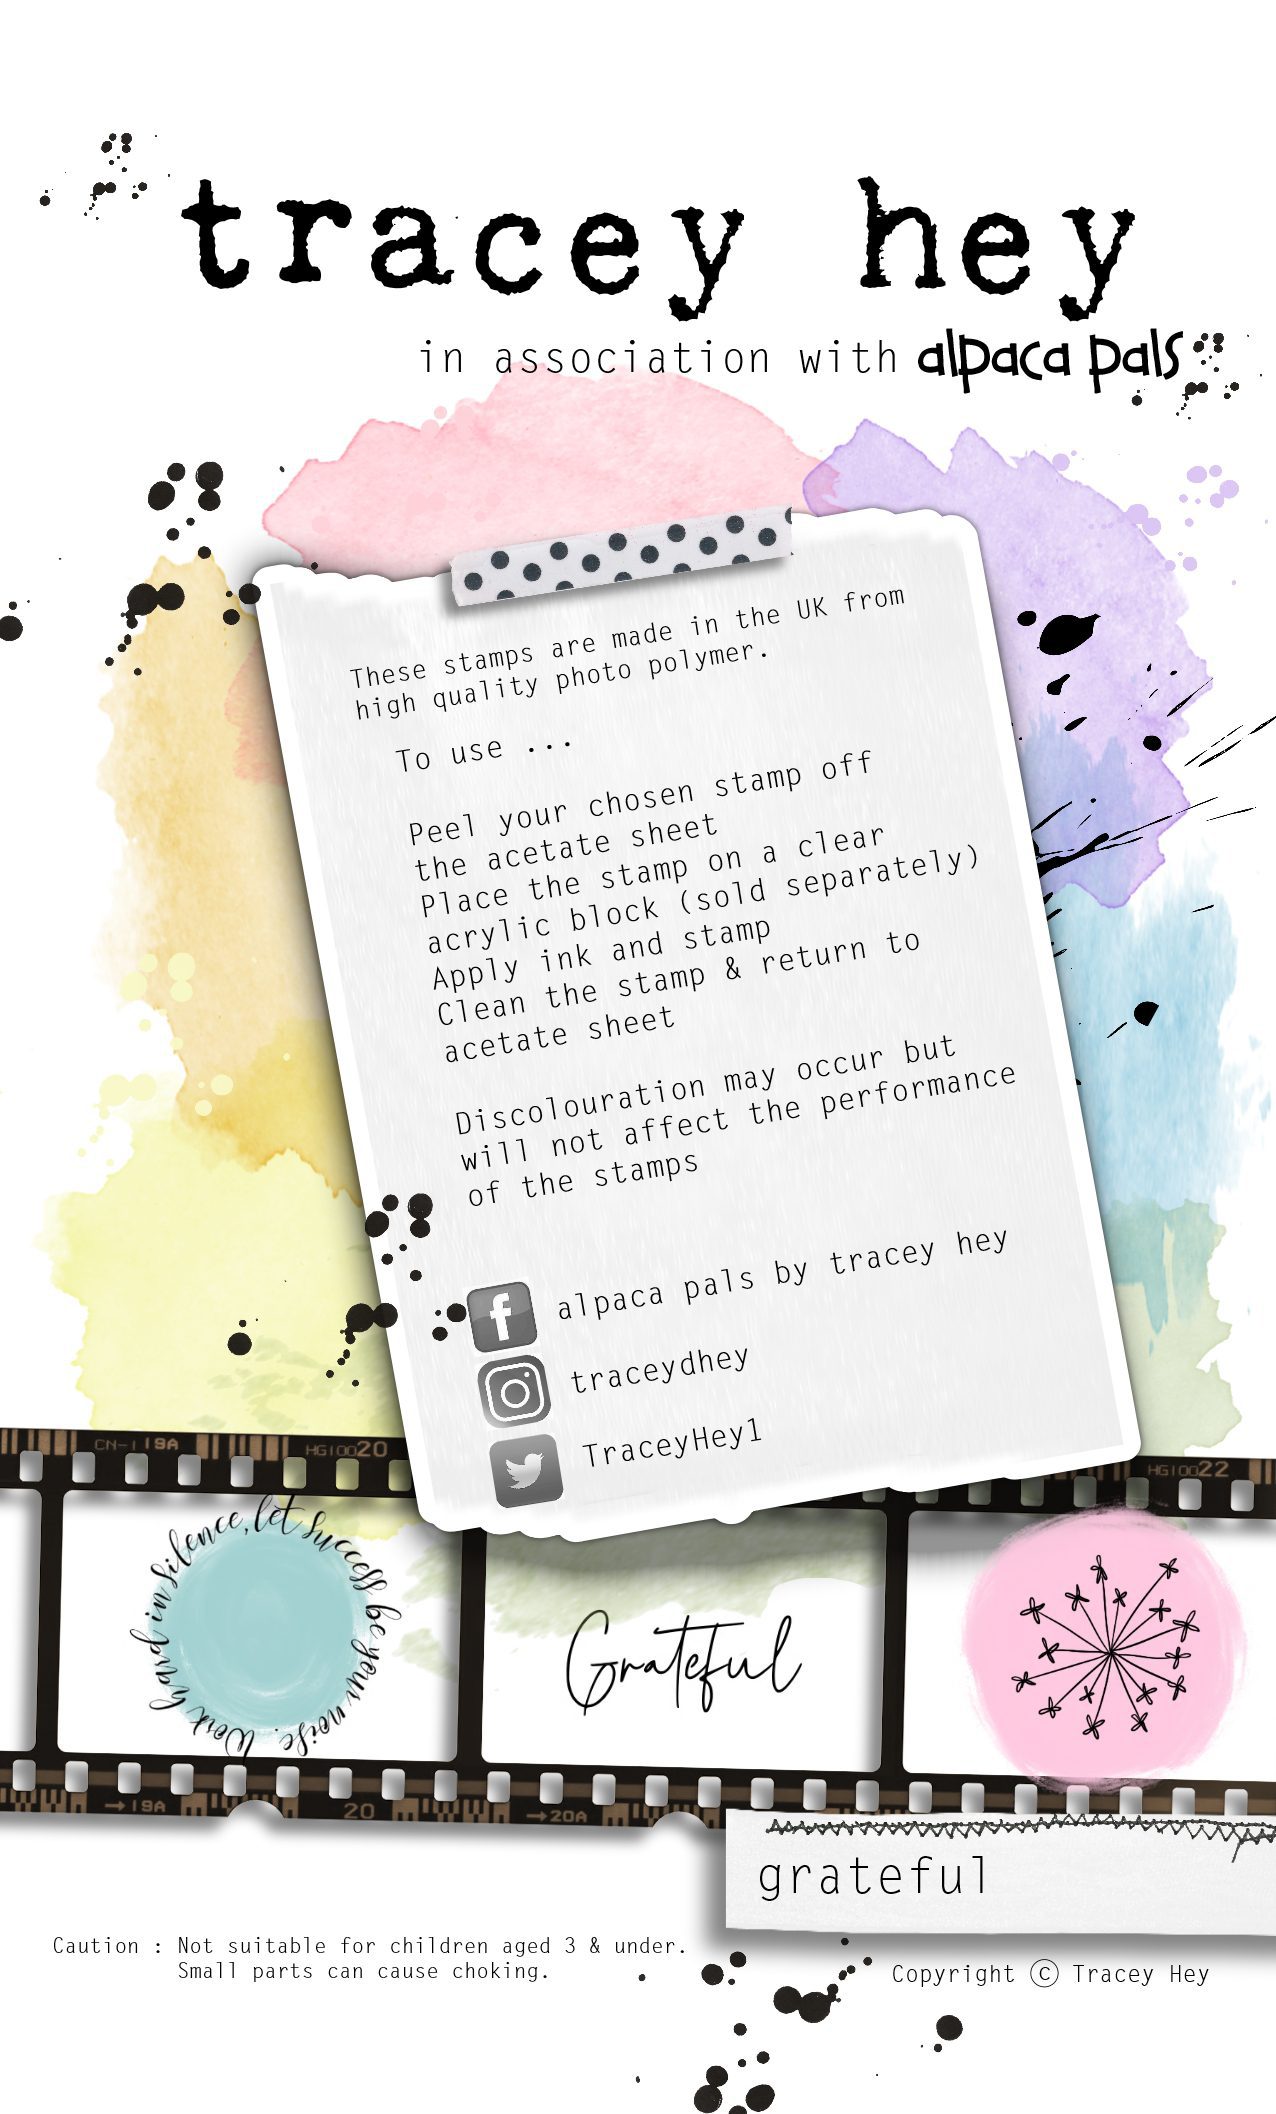 tracey hey
in association with alpaca pals
These stamps are made in the UK from
high quality photo polymer.
To use ...
Peel your chosen stamp off
the acetate sheet
Place the stamp on a clear
acrylic block (sold separately)
Apply ink and stamp
Clean the stamp & return to
acetate sheet
Discolouration may occur but
will not affect the performance
of the stamps
alpaca pals by tracey hey
traceydhey
TraceyHey1
CN-1 19A
HG10020
HG10022
Work hard in silence, let success be your noise.
Grateful
→19A
20
→20A
grateful
Caution : Not suitable for children aged 3 & under.
Small parts can cause choking.
Copyright © Tracey Hey